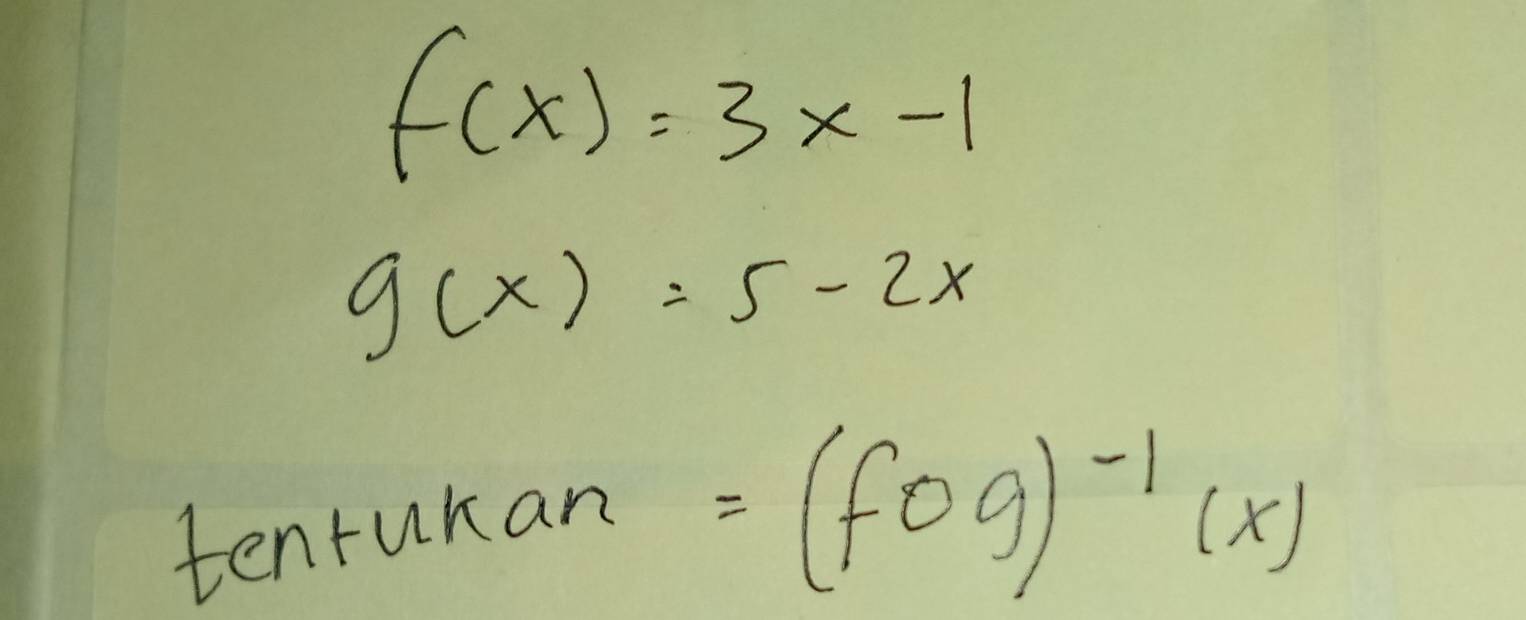 f(x) = 3x - 1
g(x) = 5 - 2x
tentukan = (f o g)⁻¹ (x)